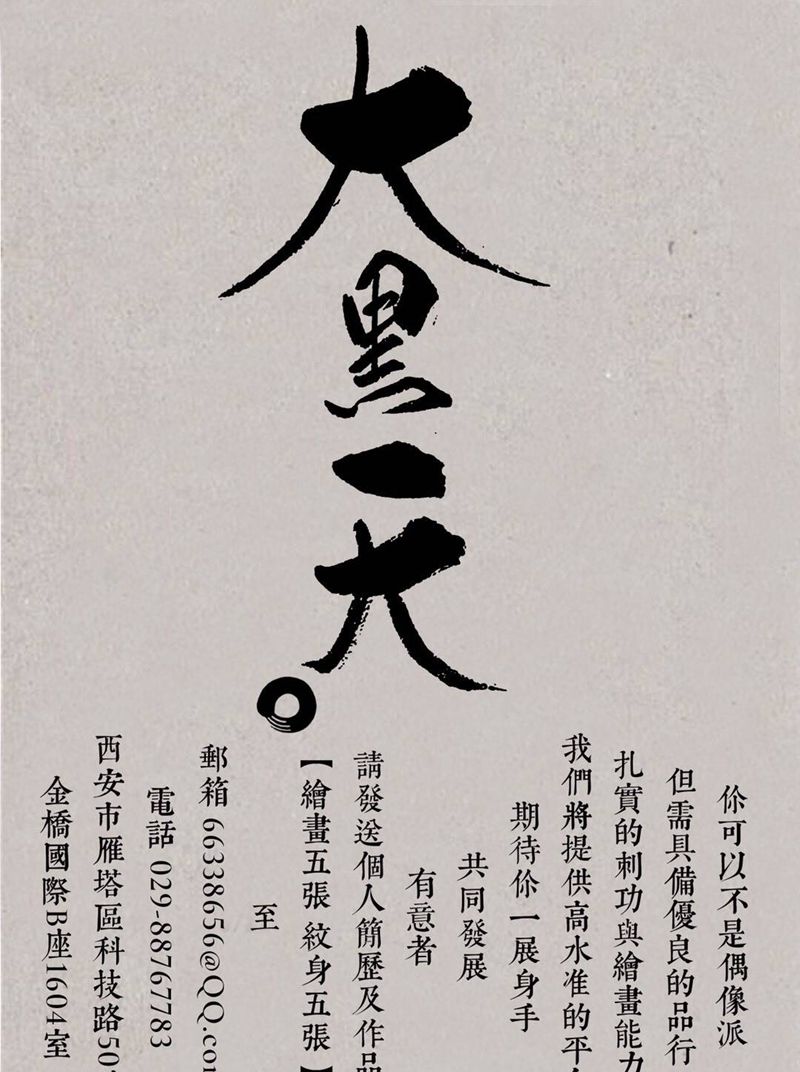 大黑一大
你可以不是偶像派
但需具備優良的品行
扎實的刺功與繪畫能力
我們將提供高水准的平
期待你一展身手
共同發展
有意者
請發送個人簡歷及作品
【繪畫五張 紋身五張】
至
郵箱 66338656@QQ.co
電話 029-88767783
西安市雁塔區科技路50
金橋國際B座1604室